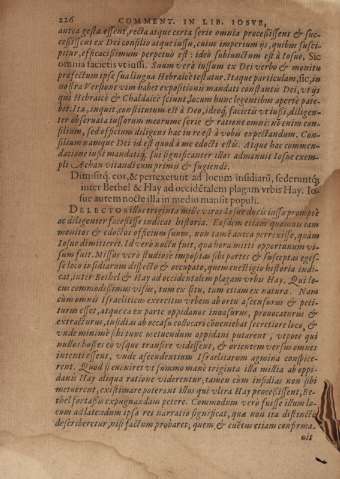 226 COMMENT. IN LIB. IOSVE,
antea gesta essent, recta atque certa serie omnia processissent & suc-
cessissent ex Dei consilio atque iussu, cuius imperium ijs, quibus susci-
pitur, efficacissimum perpetuo est: ideo subiunctum est à Iosue, Sic
omnia facietis vt iussi. Suum verò iussum ex Dei verbo & monitu
profectum ipse sua lingua Hebraicè testatur. Itaque particulam, sic, in
nostra Versione vim habet expositionis mandati constantis Dei, vt ijs
qui Hebraicè & Chaldaicè sciunt, locum hunc legentibus apertè pate-
bit. Ita, inquit, constitutum est à Deo, ideoq́; facietis vt iussi, diligen-
ter obseruata iussorum meorum serie & ratione omni: nò enim con-
silium, sed officium diligens hac in re est à vobis expectandum. Con-
silium namque Dei id est quod à me edocti estis. Atque hac commen-
datione iussi mandatiq́; sui significanter illos admonuit Iosue exem-
pli Achan vitandi cum primis & fugiendi.
Dimisitq́; eos, & perrexerunt ad locum insidiarū, sederuntq́;
inter Bethel & Hay ad occidētalem plagam vrbis Hay. Io-
sue autem nocte illa in medio mansit populi.
DELECTOS illos triginta mille viros Iosue ducis iussa promptè
ac diligenter fecisse indicat historia. Eosdem etiam quamuis iam
monitos & edoctos officium suum, non tamē antea perrexisse, quàm
Iosue dimitteret. Id verò noctu fuit, qua hora mitti opportunum vi-
sum fuit. Missos verò studiosè impositas sibi partes & susceptas eges-
se loco insidiarum dilecto & occupato, quem enestigio historia indi-
cat, inter Bethel & Hay ad occidentalem plagam vrbis Hay. Qui lo-
cus commodissimus visus, tum ex situ, tum etiam ex natura. Nam
cùm omnis Israeliticus exercitus vrbem ab ortu ascensurus & peti-
turus esset, atque ea ex parte oppidanos inuasurus, prouocaturus &
extracturus, insidias ab occasu collocari conueniebat secretiore loco, &
vnde minimè sibi tunc metuendum oppidani putarent, vtpote qui
nullos hostes eò vsque transire vidissent, & orientem versus omnes
intenti essent, vnde ascendentium Israelitarum agmina conspice-
rent. Quod si euenire vt summo manè triginta illa millia ab oppi-
danis Hay aliqua ratione viderentur, tamen cùm insidias non sibi
metuerent, existimare poterant illos qui vltra Hay processissent, Be-
thel fortassis expugnandam petere. Commodum verò fuisse illum lo-
cum ad latendum ipsa res narratis significat, quæ non ita distinctè
describeretur, nisi factum probaret, quem & euētus etiam confirma-
uit